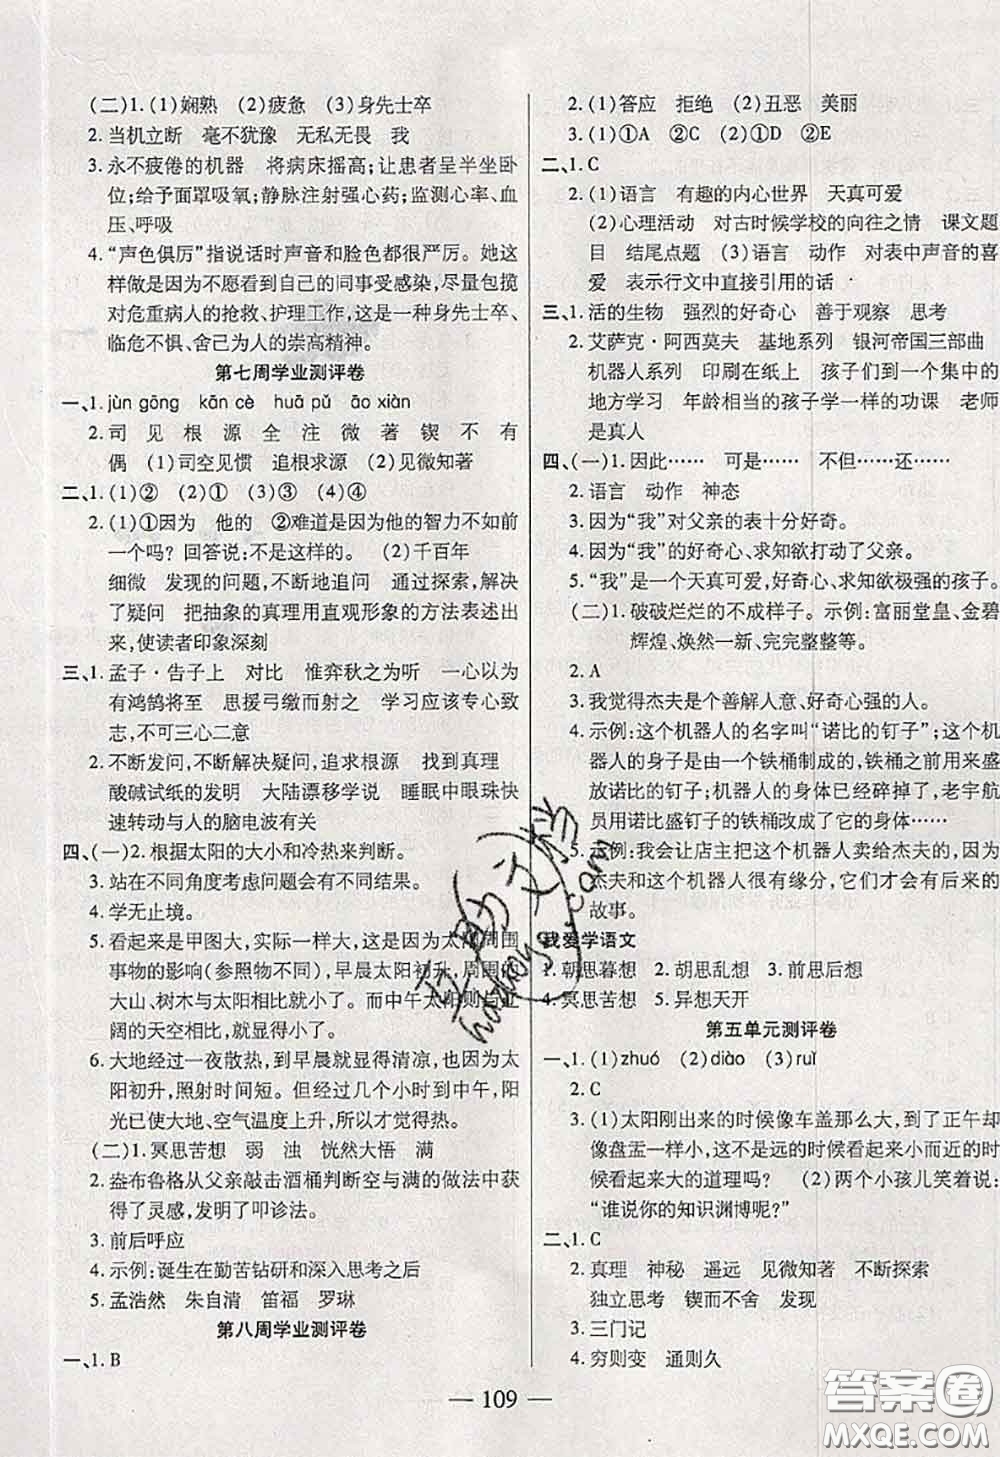 (二)1.(1)娴熟　(2)疲惫　(3)身先士卒
2.当机立断　毫不犹豫　无私无畏　我
3.永不疲倦的机器　将病床摇高;让患者呈半坐卧
位;给予面罩吸氧;静脉注射强心药;监测心率、血
压、呼吸
4.“声色俱厉”指说话时声音和脸色都很严厉。她这
样做是因为不愿看到自己的同事受感染,尽量包揽
对危重病人的抢救、护理工作,这是一种身先士卒、
临危不惧、舍己为人的崇高精神。
第七周学业测评卷
一、1.jùn gōng　kān cè　huā pǔ　āo xiàn
2.司　见　根　源　全　注　微　著　锲　不　有
偶　(1)司空见惯　追根求源　(2)见微知著
二、1.(1)②　(2)①　(3)③　(4)④
2.(1)①因为　他的　②难道是因为他的智力不如前
一个吗?　回答说:不是这样的。　(2)千百年
细微　发现的问题,不断地追问　通过探索,解决
了疑问　把抽象的真理用直观形象的方法表述出
来,使读者印象深刻
三、1.孟子·告子上　对比　惟弈秋之为听　一心以为
有鸿鹄将至　思援弓缴而射之　学习应该专心致
志,不可三心二意
2.不断发问,不断解决疑问,追求根源　找到真理
酸碱试纸的发明　大陆漂移学说　睡眠中眼珠快
速转动与人的脑电波有关
四、(一)2.根据太阳的大小和冷热来判断。
3.站在不同角度考虑问题会有不同结果。
4.学无止境。
5.看起来是甲图大,实际一样大,这是因为太阳周围
事物的影响(参照物不同),早晨太阳初升,周围的
大山、树木与太阳相比就显得大。而中午太阳则与更
阔的天空相比,就显得小了。
6.大地经过一夜散热,到早晨就显得清凉,也因为太
阳初升,照射时间短。经过几个小时到中午,阳
光已使大地、空气温度上升,所以才觉得热。
(二)1.冥思苦想　弱　浊　恍然大悟　满
2.盎布鲁格从父亲敲击酒桶判断空与满的做法中获
得了灵感,发明了叩诊法。
3.前后呼应
4.示例:诞生在勤苦钻研和深入思考之后
5.孟浩然　朱自清　笛福　罗琳
第八周学业测评卷
一、1.B
2.(1)答应　拒绝　(2)丑恶　美丽
3.(1)①A　②C　(2)①D　②E
二、1.C
2.(1)语言　有趣的内心世界　天真可爱
(2)心理活动　对古时候学校的向往之情　课文题
目　结尾点题　(3)语言　动作　对表中声音的喜
爱　表示行文中直接引用的话
三、1.活的生物　强烈的好奇心　善于观察　思考
2.艾萨克·阿西莫夫　基地系列　银河帝国三部曲
机器人系列　印刷在纸上　孩子们到一个集中的
地方学习　年龄相当的孩子学一样的功课　老师
是真人
四、(一)1.因此……　可是……　不但……还……
2.语言　动作　神态
3.因为“我”对父亲的表十分好奇。
4.因为“我”的好奇心、求知欲打动了父亲。
5.“我”是一个天真可爱,好奇心、求知欲极强的孩子。
(二)1.破破烂烂的不成样子。示例:富丽堂皇、金碧
辉煌、焕然一新、完完整整等。
2.A
3.我觉得杰夫是个善解人意、好奇心强的人。
4.示例:这个机器人的名字叫“诺比的钉子”;这个
机器人的是由一个铁桶制成的,铁桶原来是盛
放诺比的钉子;机器人的身体已经碎掉了,老宇航
员用诺比盛钉子的铁桶改成了它的身体……
5.示例:我会让店主把这个机器人卖给杰夫的,因为
杰夫和这个机器人很有缘分,它们会有很多的
故事。
我爱学语文
1.朝思暮想　2.胡思乱想　3.前思后想
4.冥思苦想　5.异想天开
第五单元测评卷
一、1.(1)zhuó　(2)diào　(3)ruǐ
2.C
3.(1)太阳刚出来的时候像车盖那么大,到了正午却
像盘盂一样小,这不是远的时候看起来小而近的时
候看起来大的道理吗?　(2)两个小孩儿笑着说:
“谁说你的知识渊博呢?”
二、1.C
2.真理　神秘　遥远　见微知著　不断探索
独立思考　锲而不舍　发现
3.三门记
4.穷则变　通则久
— 109 —
互助文档
huzhuwenda.com
答案圈
MXQE.COM